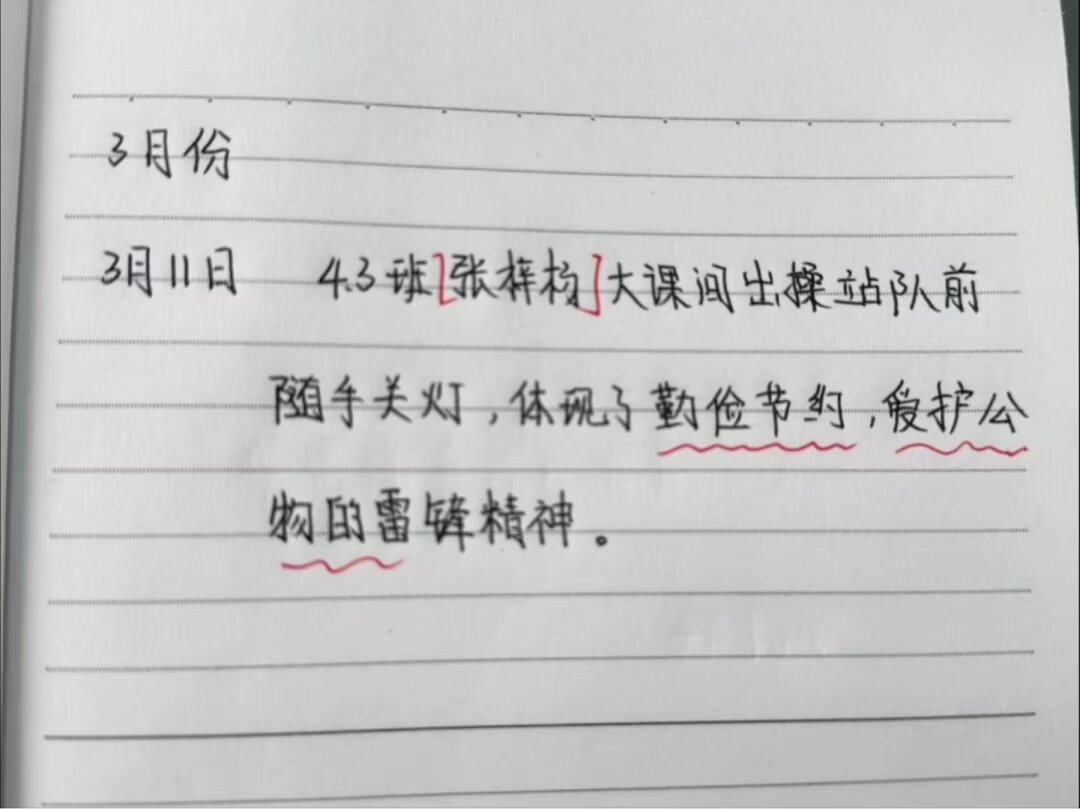 3月份
3月11日 4.3班[张梓杨]大课间出操站队前
随手关灯,体现了勤俭节约,爱护公
物的雷锋精神。